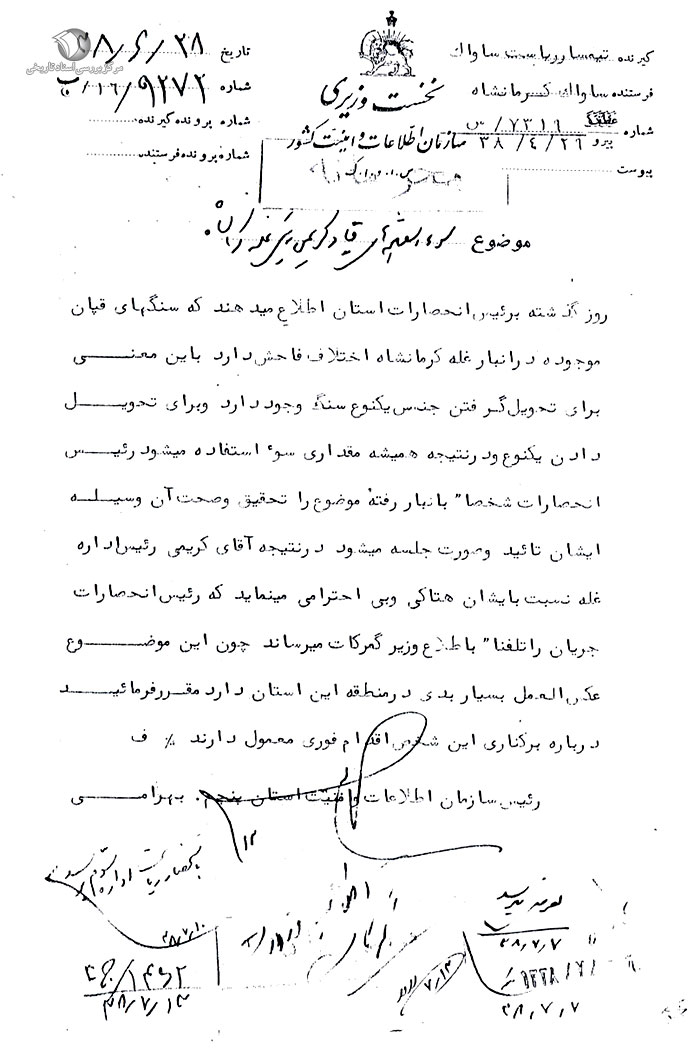 مرکز بررسی اسناد تاریخی
گیرنده تیمسار ریاست ساواک
فرستنده ساواک کرمانشاه
شماره ۷۳۱۶/س
پیرو ۳۸/۴/۲۶
پیوست
نخست وزیری
سازمان اطلاعات و امنیت کشور
تاریخ ۳۸/۶/۲۸
شماره
شماره پرونده گیرنده
شماره پرونده فرستنده
موضوع سوء استفاده‌های قباد کریمی رئیس غله
روز گذشته برئیس انحصارات استان اطلاع میدهند که سنگهای قپان
موجوده در انبار غله کرمانشاه اختلاف فاحش دارد باین معنی
برای تحویل گرفتن جنس یکنوع سنگ وجود دارد وبرای تحویل
دادن یکنوع ودرنتیجه همیشه مقداری سوء استفاده میشود رئیس
انحصارات شخصا" بانبار رفته موضوع را تحقیق وصحت آن وسیله
ایشان تائید وصورت جلسه میشود درنتیجه آقای کریمی رئیس اداره
غله نسبت بایشان هتاکی وبی احترامی مینماید که رئیس انحصارات
جریان را تلفنا" باطلاع وزیر گمرکات میرساند چون این موضوع
عکس العمل بسیار بدی درمنطقه این استان دارد مقررفرمائید
درباره برکناری این شخص اقدام فوری معمول دارند ٪ ف
رئیس سازمان اطلاعات وامنیت استان پنجم. بهرامی
بعرض رسید
۳۸/۷/۷
۳۸/۷/۷
۷/۱۳
۳۸/۷/۱۰
۳۸/۷/۱۳